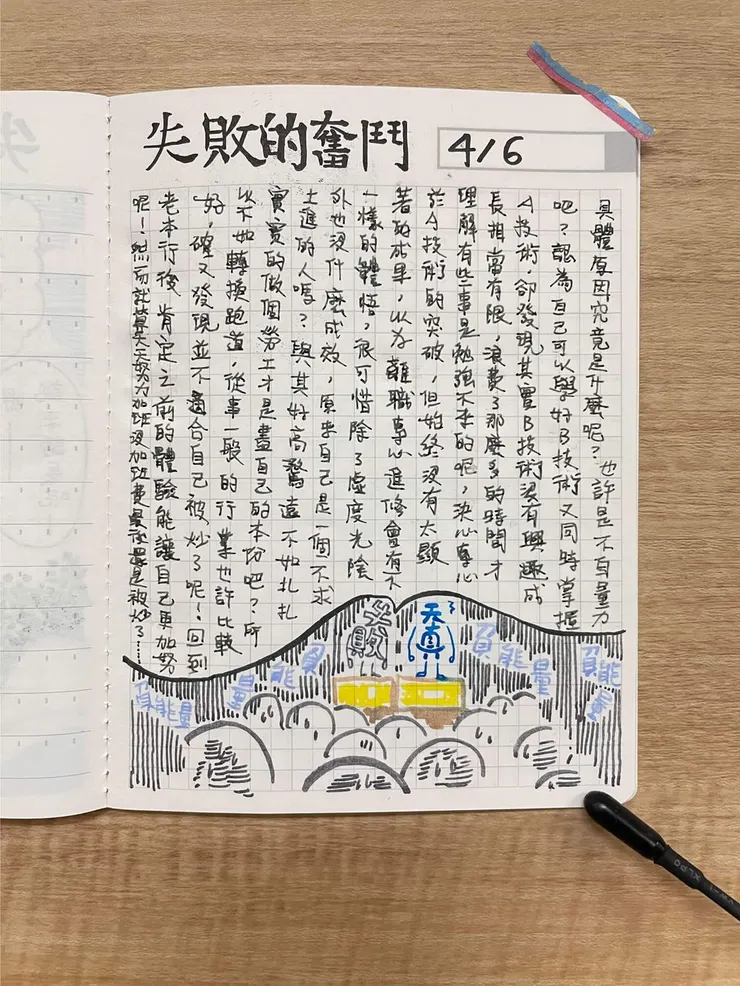 失敗的奮鬥
4/6
具體原因究竟是什麼呢?也許是不自量力
吧?認為自己可以學好B技術又同時掌握
A技術,卻發現其實B技術沒有興趣成
長相當有限,浪費了那麼多的時間才
理解有些事是勉強不來的呢,決心專心
於A技術的突破,但始終沒有太顯
著的成果,以為離職專心進修會有不
一樣的體悟,很可惜除了虛度光陰
外也沒什麼成效,原來自己是一個不求
上進的人嗎?與其好高騖遠不如扎扎
實實的做個勞工才是盡自己的本份吧?所
以不如轉換跑道,從事一般的行業也許比較
好,確又發現並不適合自己被炒了呢!回到
老本行後肯定之前的體驗能讓自己更加努
呢!然而就算天天努力加班沒加班費最後還是被炒了……
失敗
天真
負能量
負能量
負能量
負能量
XLDO